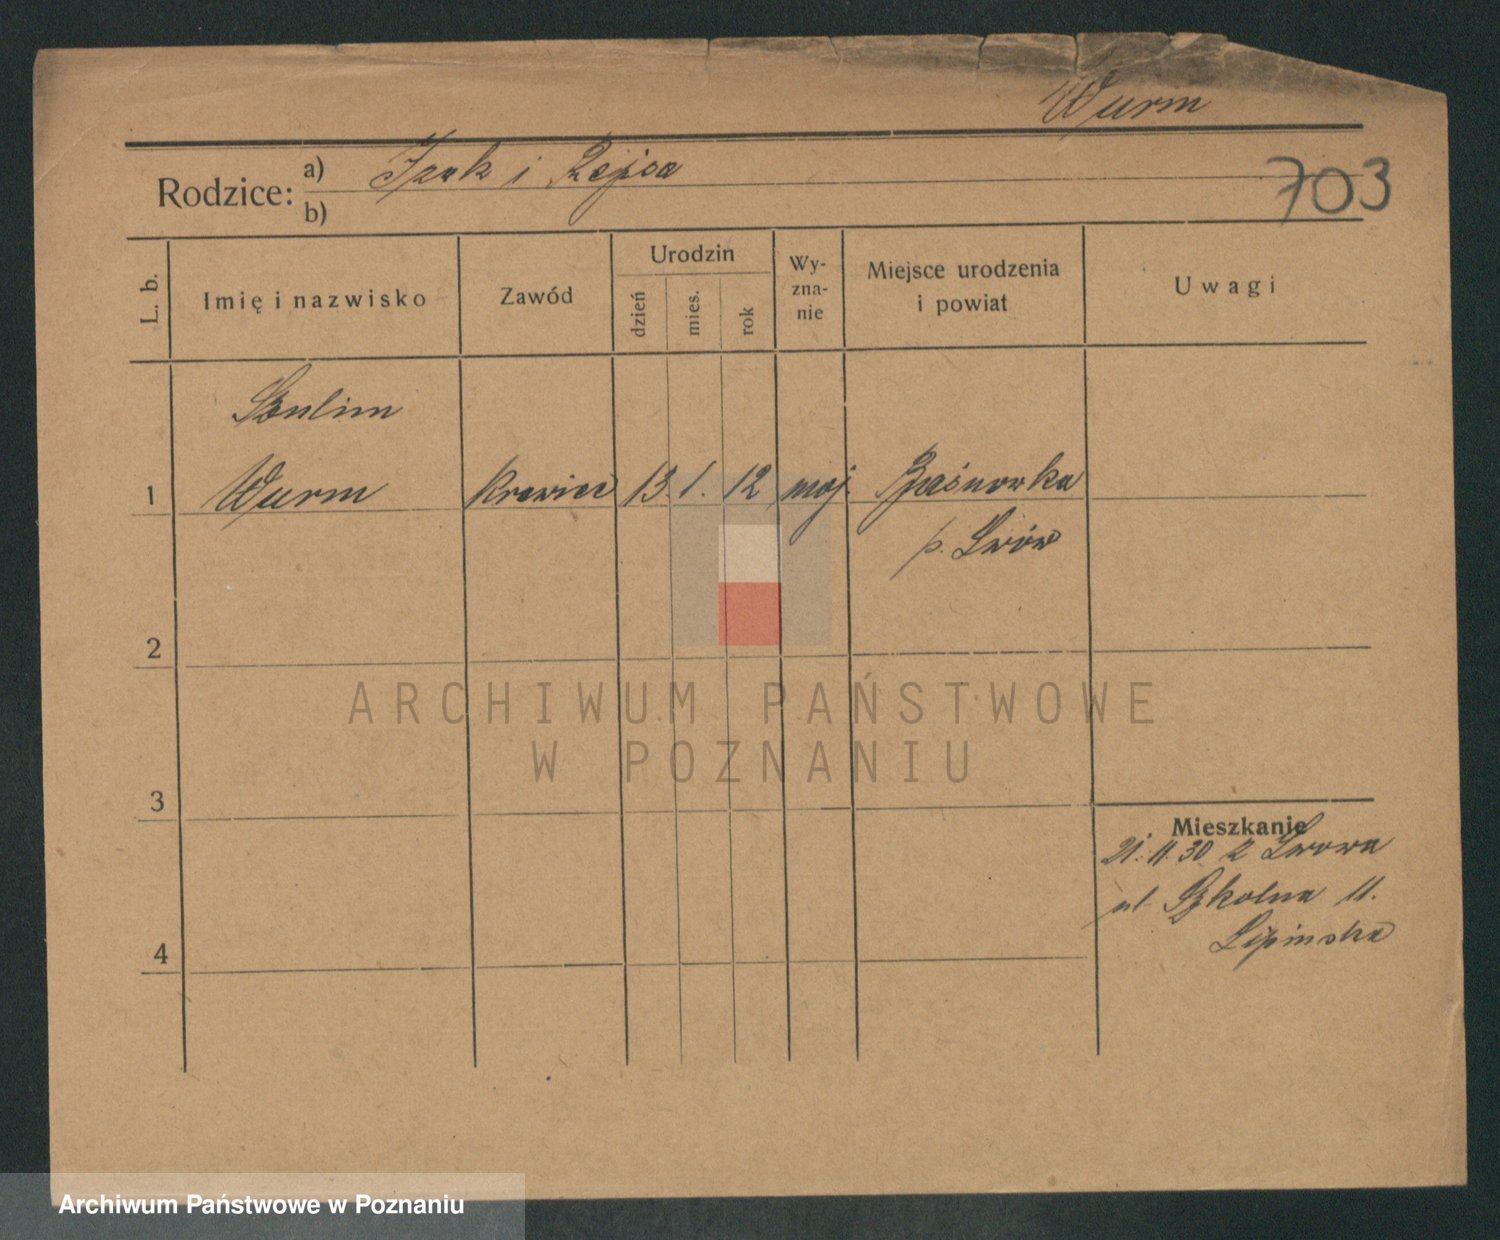 Wurm
Rodzice: a) Izak i Rejsa
b)
703
L. b. Imię i nazwisko Zawód Urodzin dzień mies. rok Wy-zna-nie Miejsce urodzenia i powiat Uwagi
Szulim
1 Wurm krawiec 13. 1. 12 moj.
p. Lwów
2
ARCHIWUM PAŃSTWOWE
W POZNANIU
3
Mieszkanie
21. 11. 30 z Lwowa
ul Szkolna 11.
4 Lipinska
Archiwum Państwowe w Poznaniu